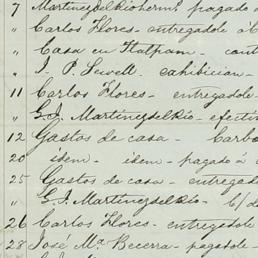 7 Martinezdelkiohermº pagado a
" Carlos Flores - entregadole á
" Casa en Tlalpam - cont
" I. P. Sewell - exhibician -
11 Carlos Flores - entregadole
" G. I. Martinezdelkio - efecti
12 Gastos de casa - Carbo
20 idem - idem - pagado á
25 Gastos de casa - entregad
" G. I. Martinezdelkio - C/ d
26 Carlos Flores - entregado
28 José Mª Becerra - pagadole -